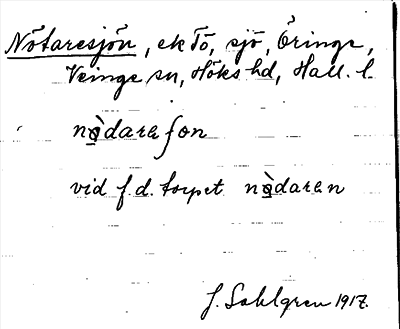 Nötaresjön, ek Tö, sjö, Öringe,
Veinge sn, Höks hd, Hall. l.
nø̀daraʃøn
vid f.d. torpet nø̀daren
J. Sahlgren 1917.